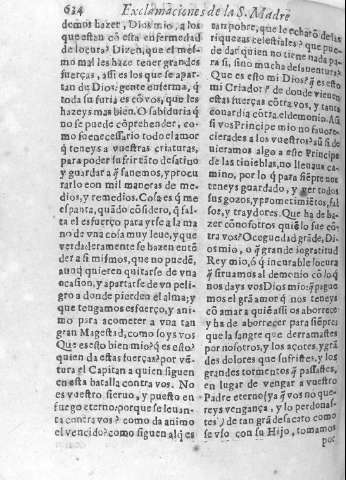 634 Exclamaciones de la S. Madre
demos hazer, Dios mio, a los
que estan cõ esta enfermedad
de locura? Dizen, que el mes-
mo mal les haze tener grandes
fuerças, assi es los que se apar-
tan de Dios: gente enferma, q̃
toda su furia es cõ vos, que les
hazeys mas bien. O sabiduria q̃
no se puede cõprehender, co-
mo fue necessario todo el amor
q̃ teneys a vuestras criaturas,
para poder sufrir tãto desatino
y guardar a q̃ sanemos, y procu
rarlo con mil maneras de me-
dios, y remedios. Cosa es q̃ me
espanta, quãdo cõsidero, q̃ fal-
ta el esfuerço para yrse a la ma
no de vna cosa muy leue, y que
verdaderamente se hazen entẽ
der a si mismos, que no puedẽ,
aunq̃ quieren quitarse de vna
ocasion, y apartarse de vn peli-
gro a donde pierden el alma; y
que tengamos esfuerço, y ani-
mo para acometer a vna tan
gran Magestad, como soys vos
Que es esto bien mio? q̃ es esto?
quien da estas fuerças? por vẽ-
tura el Capitan a quien siguen
en esta batalla contra vos. No
es vuestro sieruo, y puesto en
fuego eterno, porque se leuan-
ta contra vos? como da animo
el vencido? como siguen al q̃ es
tan pobre, que le echarõ de las
riquezas celestiales? que pue-
de dar quien no tiene nada pa-
ra si, sino mucha desauentura?
Que es esto mi Dios? q̃ es esto
mi Criador? de donde vienen
estas fuerças cõtra vos, y tanta
couardia cõtra el demonio. Aũ
si vos Principe mio no fauore-
cierades a los vuestros? aũ si de
uieramos algo a este Principe
de las tinieblas, no lleuaua ca-
mino, por lo q̃ para siẽpre nos
teneys guardado, y ver todos
sus gozos, y prometimiẽtos, fal-
sos, y traydores. Que ha de ha-
zer cõ nosotros quiẽ lo fue cõ-
tra vos? O ceguedad grãde, Di-
os mio, o q̃ grande ingratitud
Rey mio, ô q̃ incurable locura
q̃ siruamos al demonio cõ lo q̃
nos days vos Dios mio: q̃ pague
mos el grã amor q̃ nos teneys
cõ amar a quiẽ assi os aborrece
y ha de aborrecer para siẽpre:
que la sangre que derramastes
por nosotros, y los açotes, y grã
des dolores que sufristes, y los
grandes tormentos q̃ passastes,
en lugar de vengar a vuestro
Padre eterno (ya q̃ vos no que-
reys vengança, y lo perdonas-
tes) de tan grã desacato como
se vso con su Hijo, tomamos
por